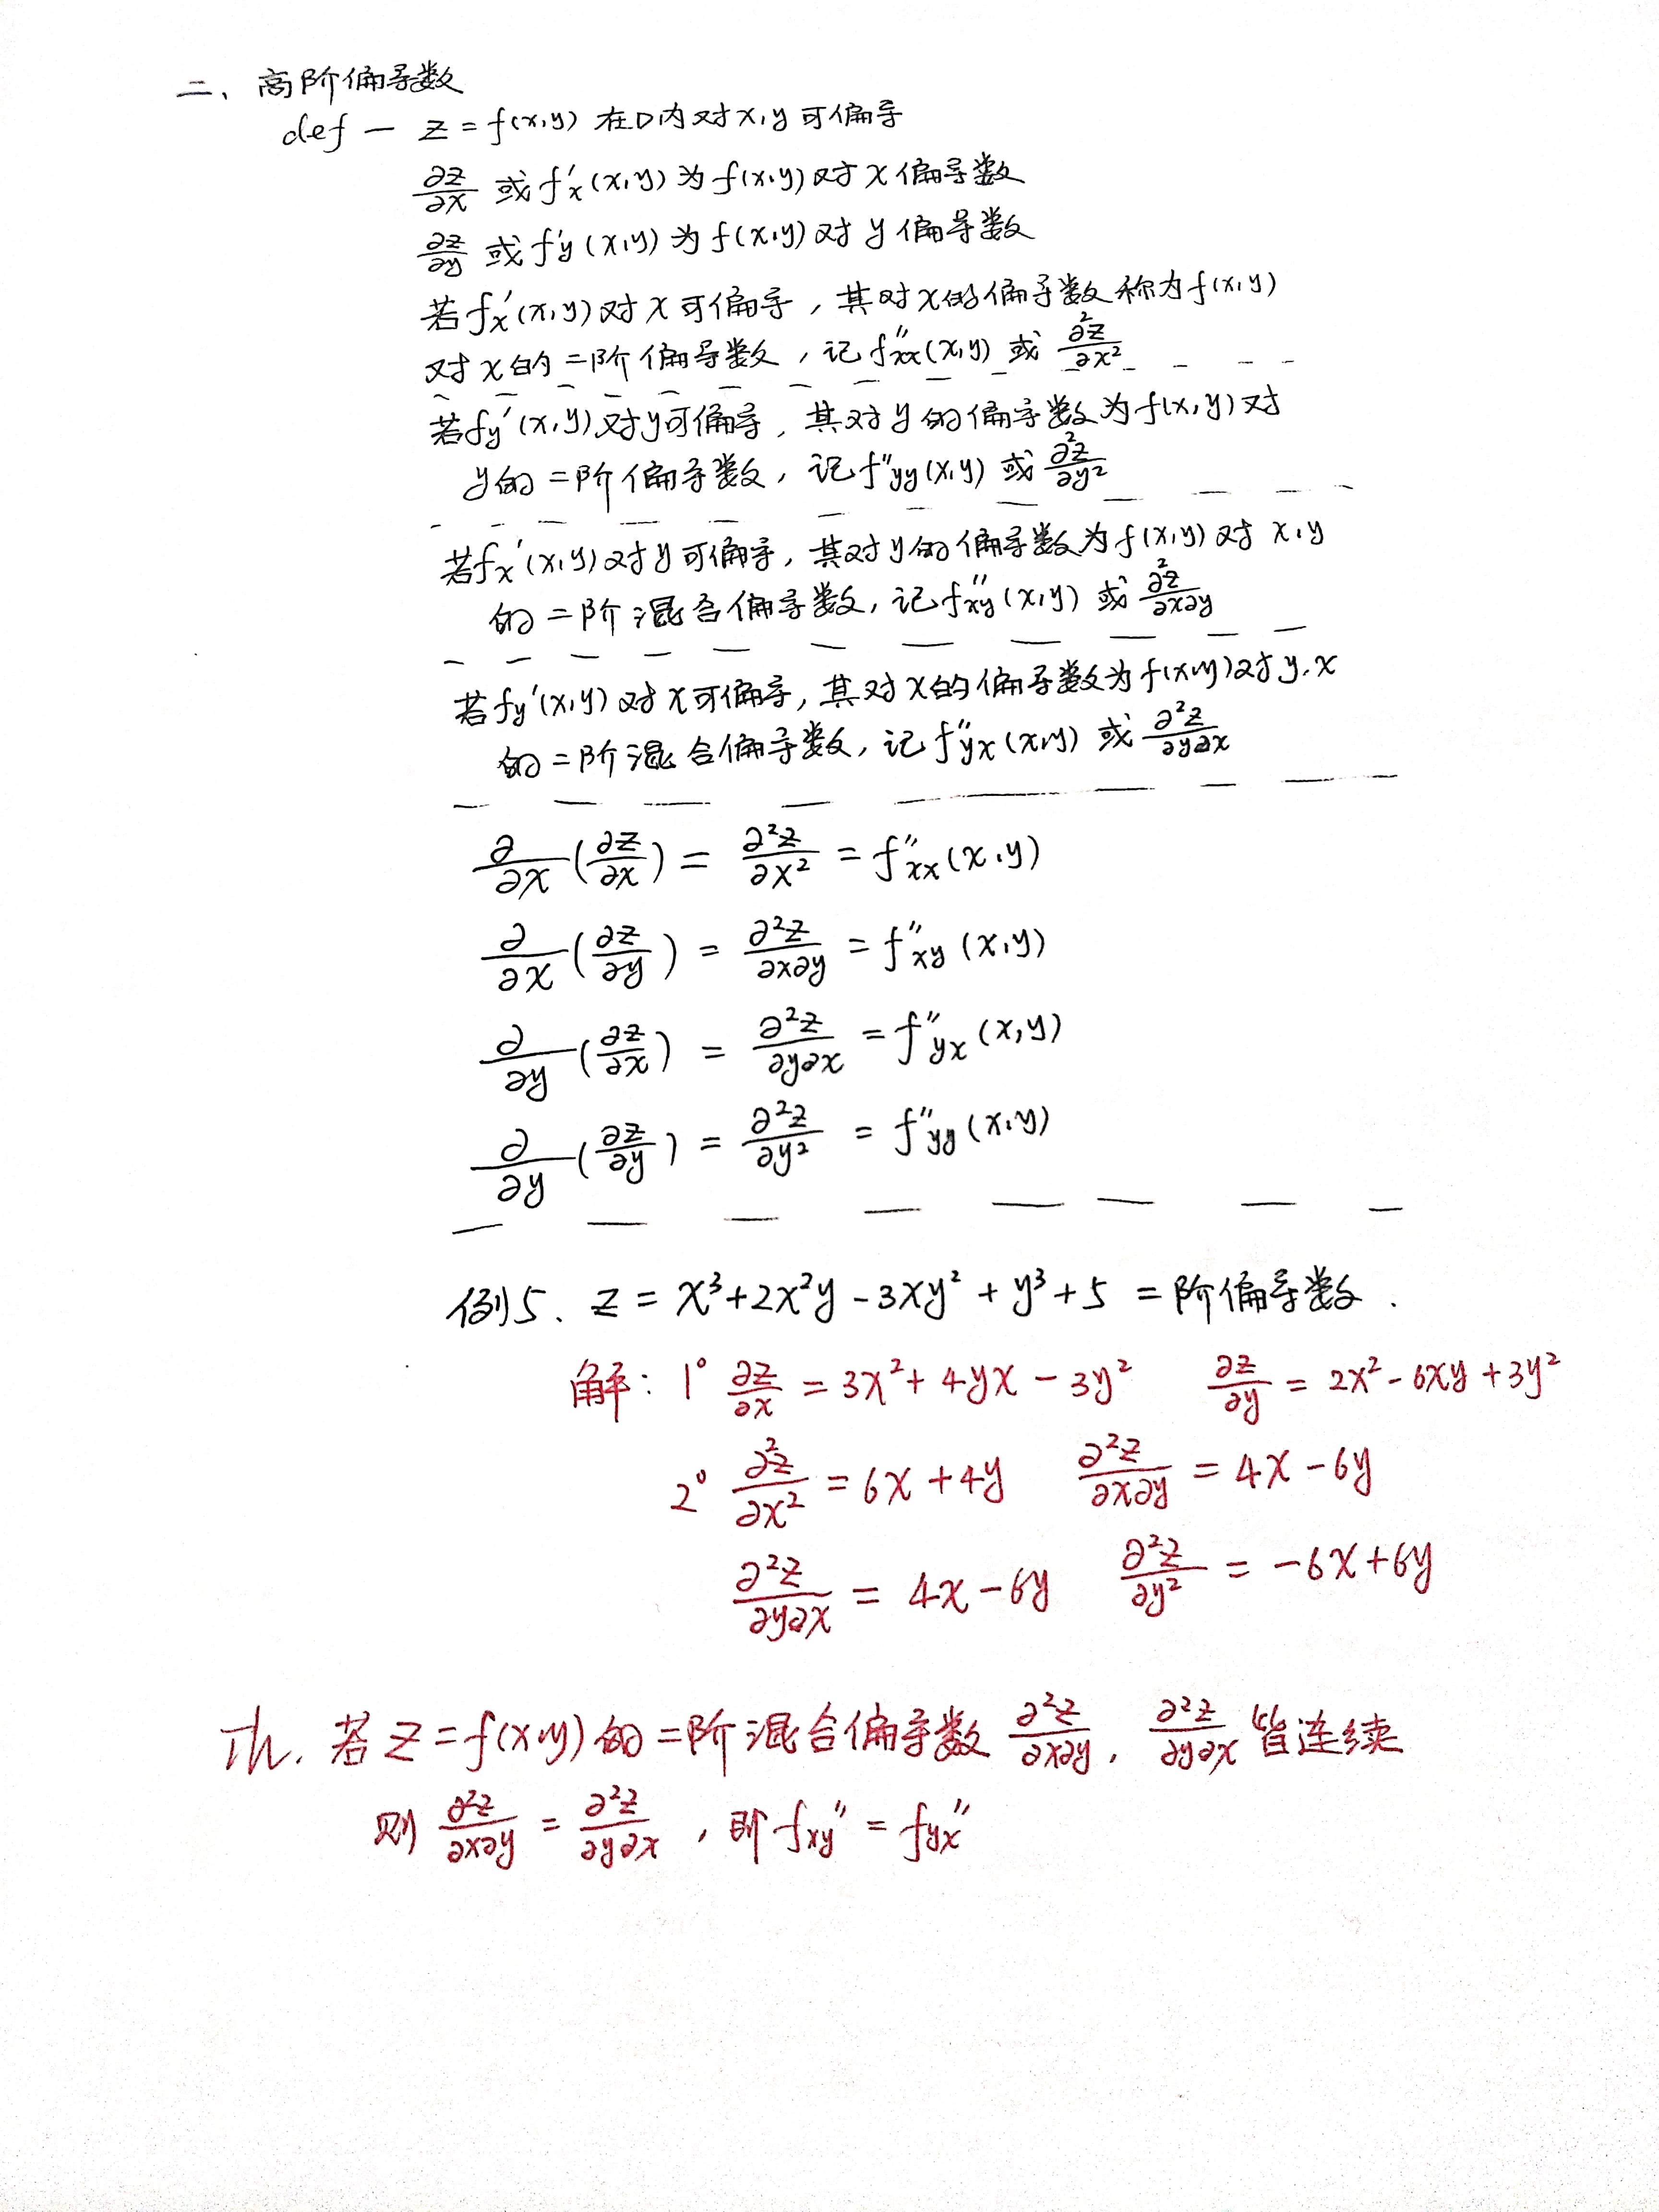 二、高阶偏导数
def — z = f(x,y) 在D内对x,y可偏导
∂z/∂x 或 f'x(x,y) 为 f(x,y) 对 x 偏导数
∂z/∂y 或 f'y(x,y) 为 f(x,y) 对 y 偏导数
若 fx'(x,y) 对 x 可偏导，其对x的偏导数称为 f(x,y)
对 x 的二阶偏导数，记 f''xx(x,y) 或 ∂²z/∂x²
若 fy'(x,y) 对y可偏导，其对 y 的偏导数为 f(x,y) 对
y的二阶偏导数，记 f''yy(x,y) 或 ∂²z/∂y²
若 fx'(x,y) 对 y 可偏导，其对y的偏导数为 f(x,y) 对 x,y
的二阶混合偏导数，记 f''xy(x,y) 或 ∂²z/∂x∂y
若 fy'(x,y) 对 x 可偏导，其对x的偏导数为 f(x,y) 对 y,x
的二阶混合偏导数，记 f''yx(x,y) 或 ∂²z/∂y∂x
∂/∂x (∂z/∂x) = ∂²z/∂x² = f''xx(x,y)
∂/∂x (∂z/∂y) = ∂²z/∂x∂y = f''xy(x,y)
∂/∂y (∂z/∂x) = ∂²z/∂y∂x = f''yx(x,y)
∂/∂y (∂z/∂y) = ∂²z/∂y² = f''yy(x,y)
例5、z = x³+2x²y-3xy²+y³+5 二阶偏导数.
解：1° ∂z/∂x = 3x²+4yx-3y² ∂z/∂y = 2x²-6xy+3y²
2° ∂²z/∂x² = 6x+4y ∂²z/∂x∂y = 4x-6y
∂²z/∂y∂x = 4x-6y ∂²z/∂y² = -6x+6y
Th. 若 z=f(x,y) 的二阶混合偏导数 ∂²z/∂x∂y, ∂²z/∂y∂x 皆连续
则 ∂²z/∂x∂y = ∂²z/∂y∂x，即 fxy'' = fyx''